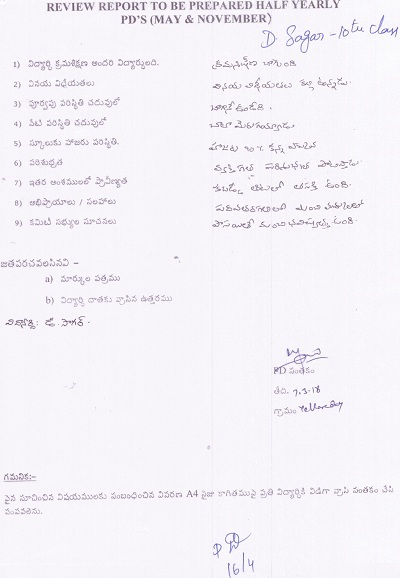 REVIEW REPORT TO BE PREPARED HALF YEARLY
PD'S (MAY & NOVEMBER)
D. Sagar - 10th class
1) విద్యార్థి క్రమశిక్షణ అందరి విద్యార్థులది. క్రమశిక్షణ బాగుంది
2) వినయ విధేయతలు వినయ విధేయతలు కల్గి ఉన్నాడు.
3) పూర్వపు పరిస్థితి చదువులో బాగానే ఉండేది.
4) నేటి పరిస్థితి చదువులో బాగా మెరుగయ్యాడు
5) స్కూలుకు హాజరు పరిస్థితి. హాజరు 90%
6) పరిశుభ్రత వ్యక్తిగత పరిశుభ్రత పాటిస్తాడు
7) ఇతర అంశములలో ప్రావీణ్యత కబడ్డీ ఆటలో ఆసక్తి ఉంది.
8) అభిప్రాయాలు / సలహాలు మంచి
9) కమిటీ సభ్యుల సూచనలు మంచి భవిష్యత్తు ఉంది.
జతపరచవలసినవి –
a) మార్కుల పత్రము
b) విద్యార్థి దాతకు వ్రాసిన ఉత్తరము
విద్యార్థి: డి. సాగర్.
PD సంతకం
తేది. 7-3-18
గ్రామం
గమనిక:-
పైన సూచించిన విషయములకు సంబంధించిన వివరణ A4 సైజు కాగితముపై ప్రతి విద్యార్థికి విడిగా వ్రాసి సంతకం చేసి
పంపవలెను.
16/4